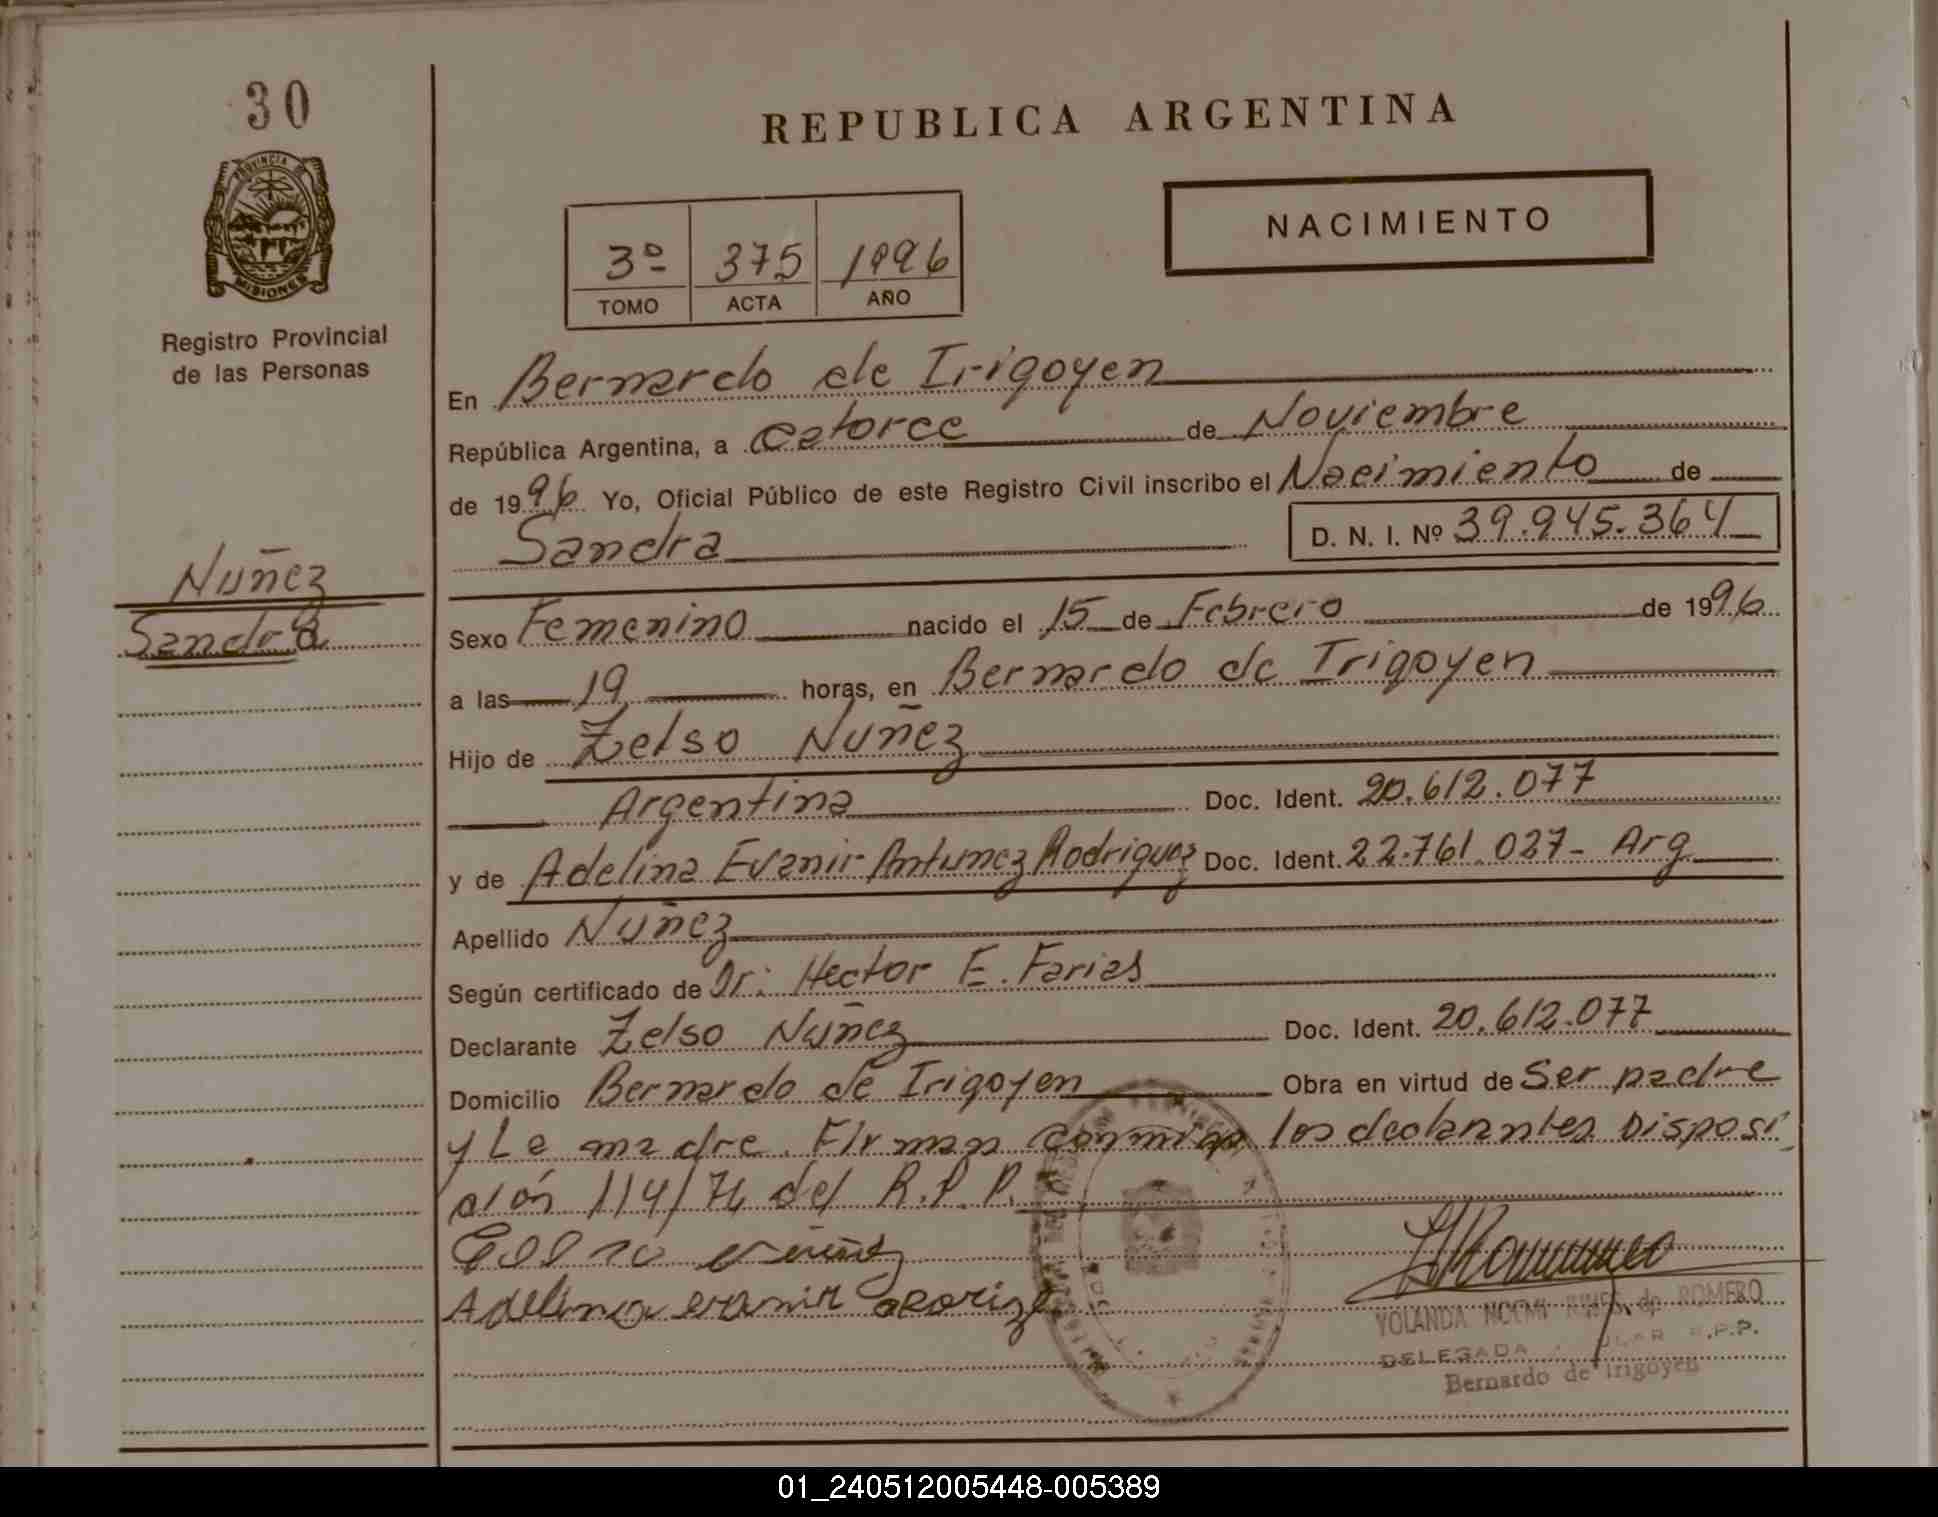 30
PROVINCIA DE
MISIONES
Registro Provincial
de las Personas
Nuñez
Sandra
REPUBLICA ARGENTINA
NACIMIENTO
3º 375 1996
TOMO ACTA AÑO
En Bernardo de Irigoyen
República Argentina, a catorce de Noviembre
de 1996 Yo, Oficial Público de este Registro Civil inscribo el Nacimiento de
Sandra D. N. I. Nº 39.945.364
Sexo Femenino nacido el 15 de Febrero de 1996
a las 19 horas, en Bernardo de Irigoyen
Hijo de Zelso Nuñez
Argentina Doc. Ident. 20.612.077
y de Adelina Evanir Antunez Rodriguez Doc. Ident. 22.761.027- Arg
Apellido Nuñez
Según certificado de Dr: Hector E. Farias
Declarante Zelso Nuñez Doc. Ident. 20.612.077
Domicilio Bernardo de Irigoyen Obra en virtud de Ser padre
y La madre. Firman conmigo los declarantes Disposi
ción 114/74 del R.P.P.
Adelina evanir
YOLANDA NOEMI de ROMERO
DELEGADA R.P.P.
Bernardo de Irigoyen
01_240512005448-005389